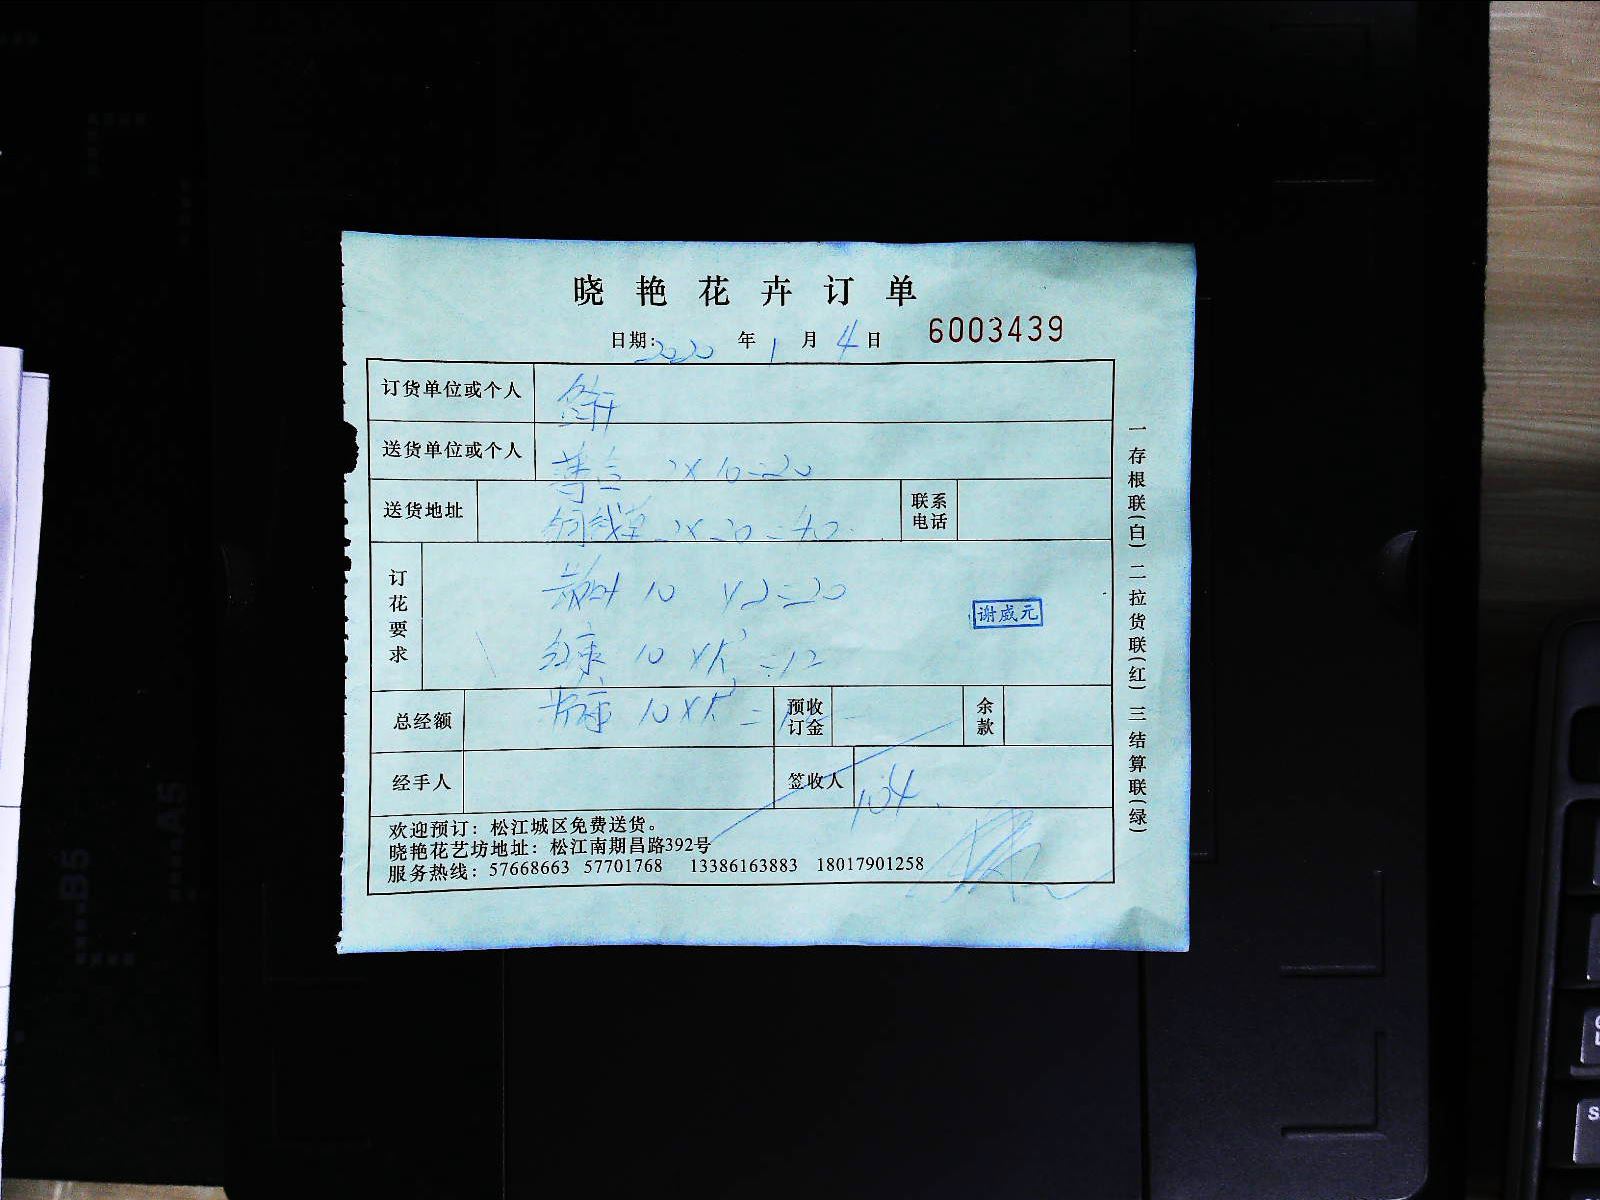 晓艳花卉订单
日期: 2020 年 1 月 4 日 6003439
订货单位或个人
送货单位或个人 2×10=20
送货地址 2×20=40 联系电话
订花要求 10 ×2=20
谢威元
10 =12
总经额 10 预收订金 余款
经手人 签收人 104
欢迎预订：松江城区免费送货。
晓艳花艺坊地址：松江南期昌路392号
服务热线：57668663 57701768 13386163883 18017901258
一存根联(白) 二拉货联(红) 三结算联(绿)
B5
A5